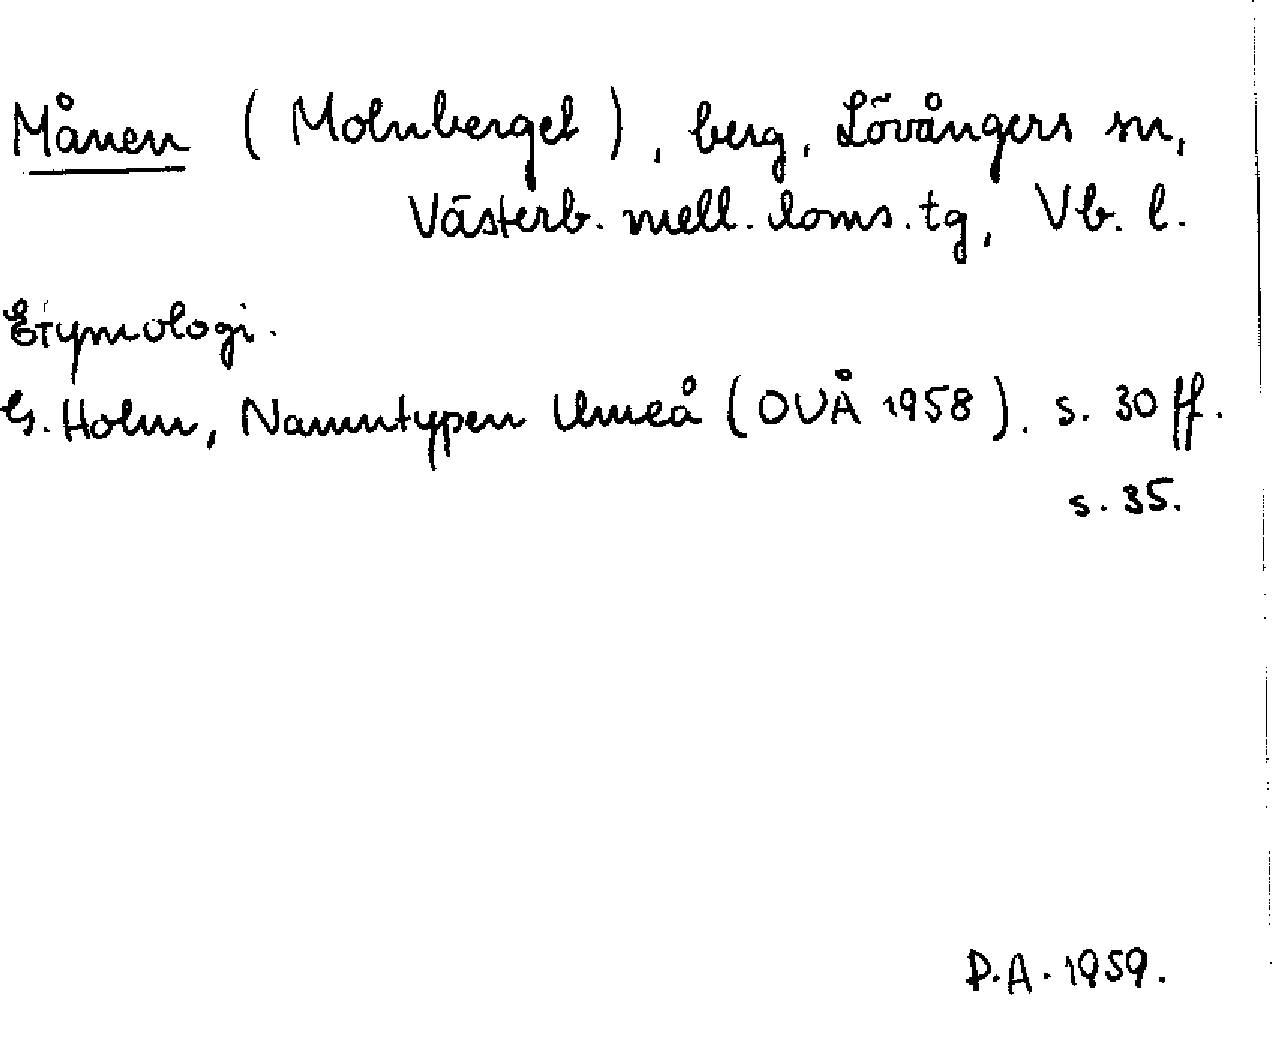 Månen (Molnberget), berg, Lövångers sn,
Västerb. mell. doms. tg, Vb. l.
Etymologi.
G. Holm, Namntypen Umeå (OUÅ 1958). s. 30 ff.
s. 35.
D.A. 1959.